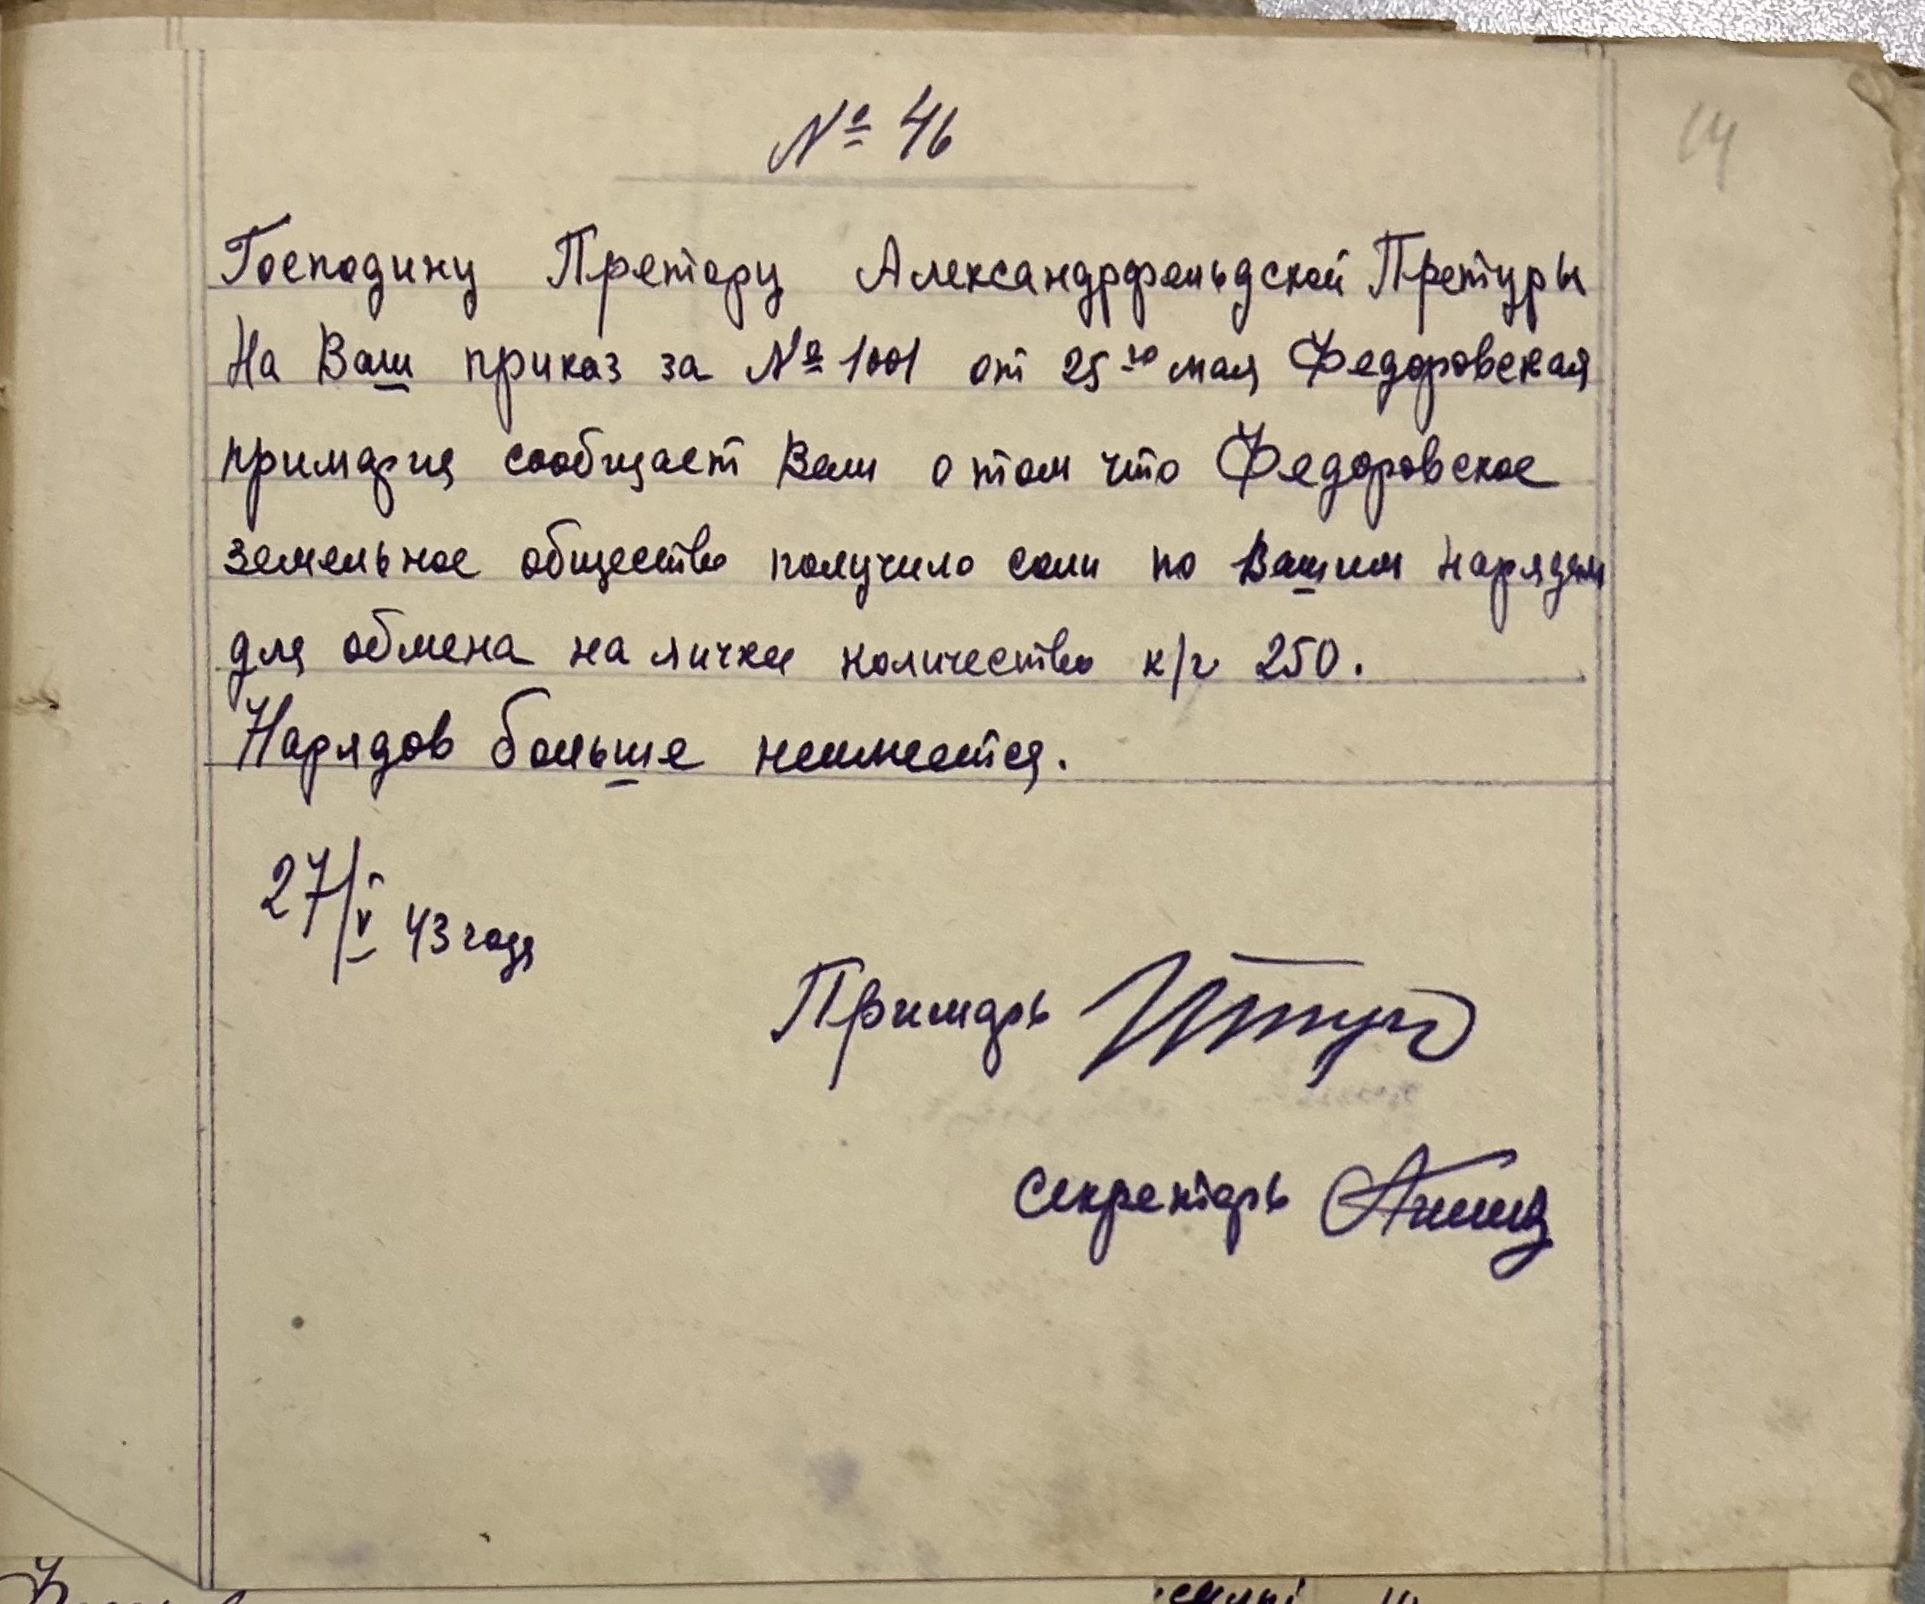 № 46
14
Господину Претору Александрфельдской Претуры
На Ваш приказ за № 1001 от 25го мая Федоровская
примария сообщает Вам о том что Федоровское
земельное общество получило соли по Вашим нарядам
для обмена на яички количество к/г 250.
Нарядов больше неимеется.
27/V 43 года
Примарь
Секретарь